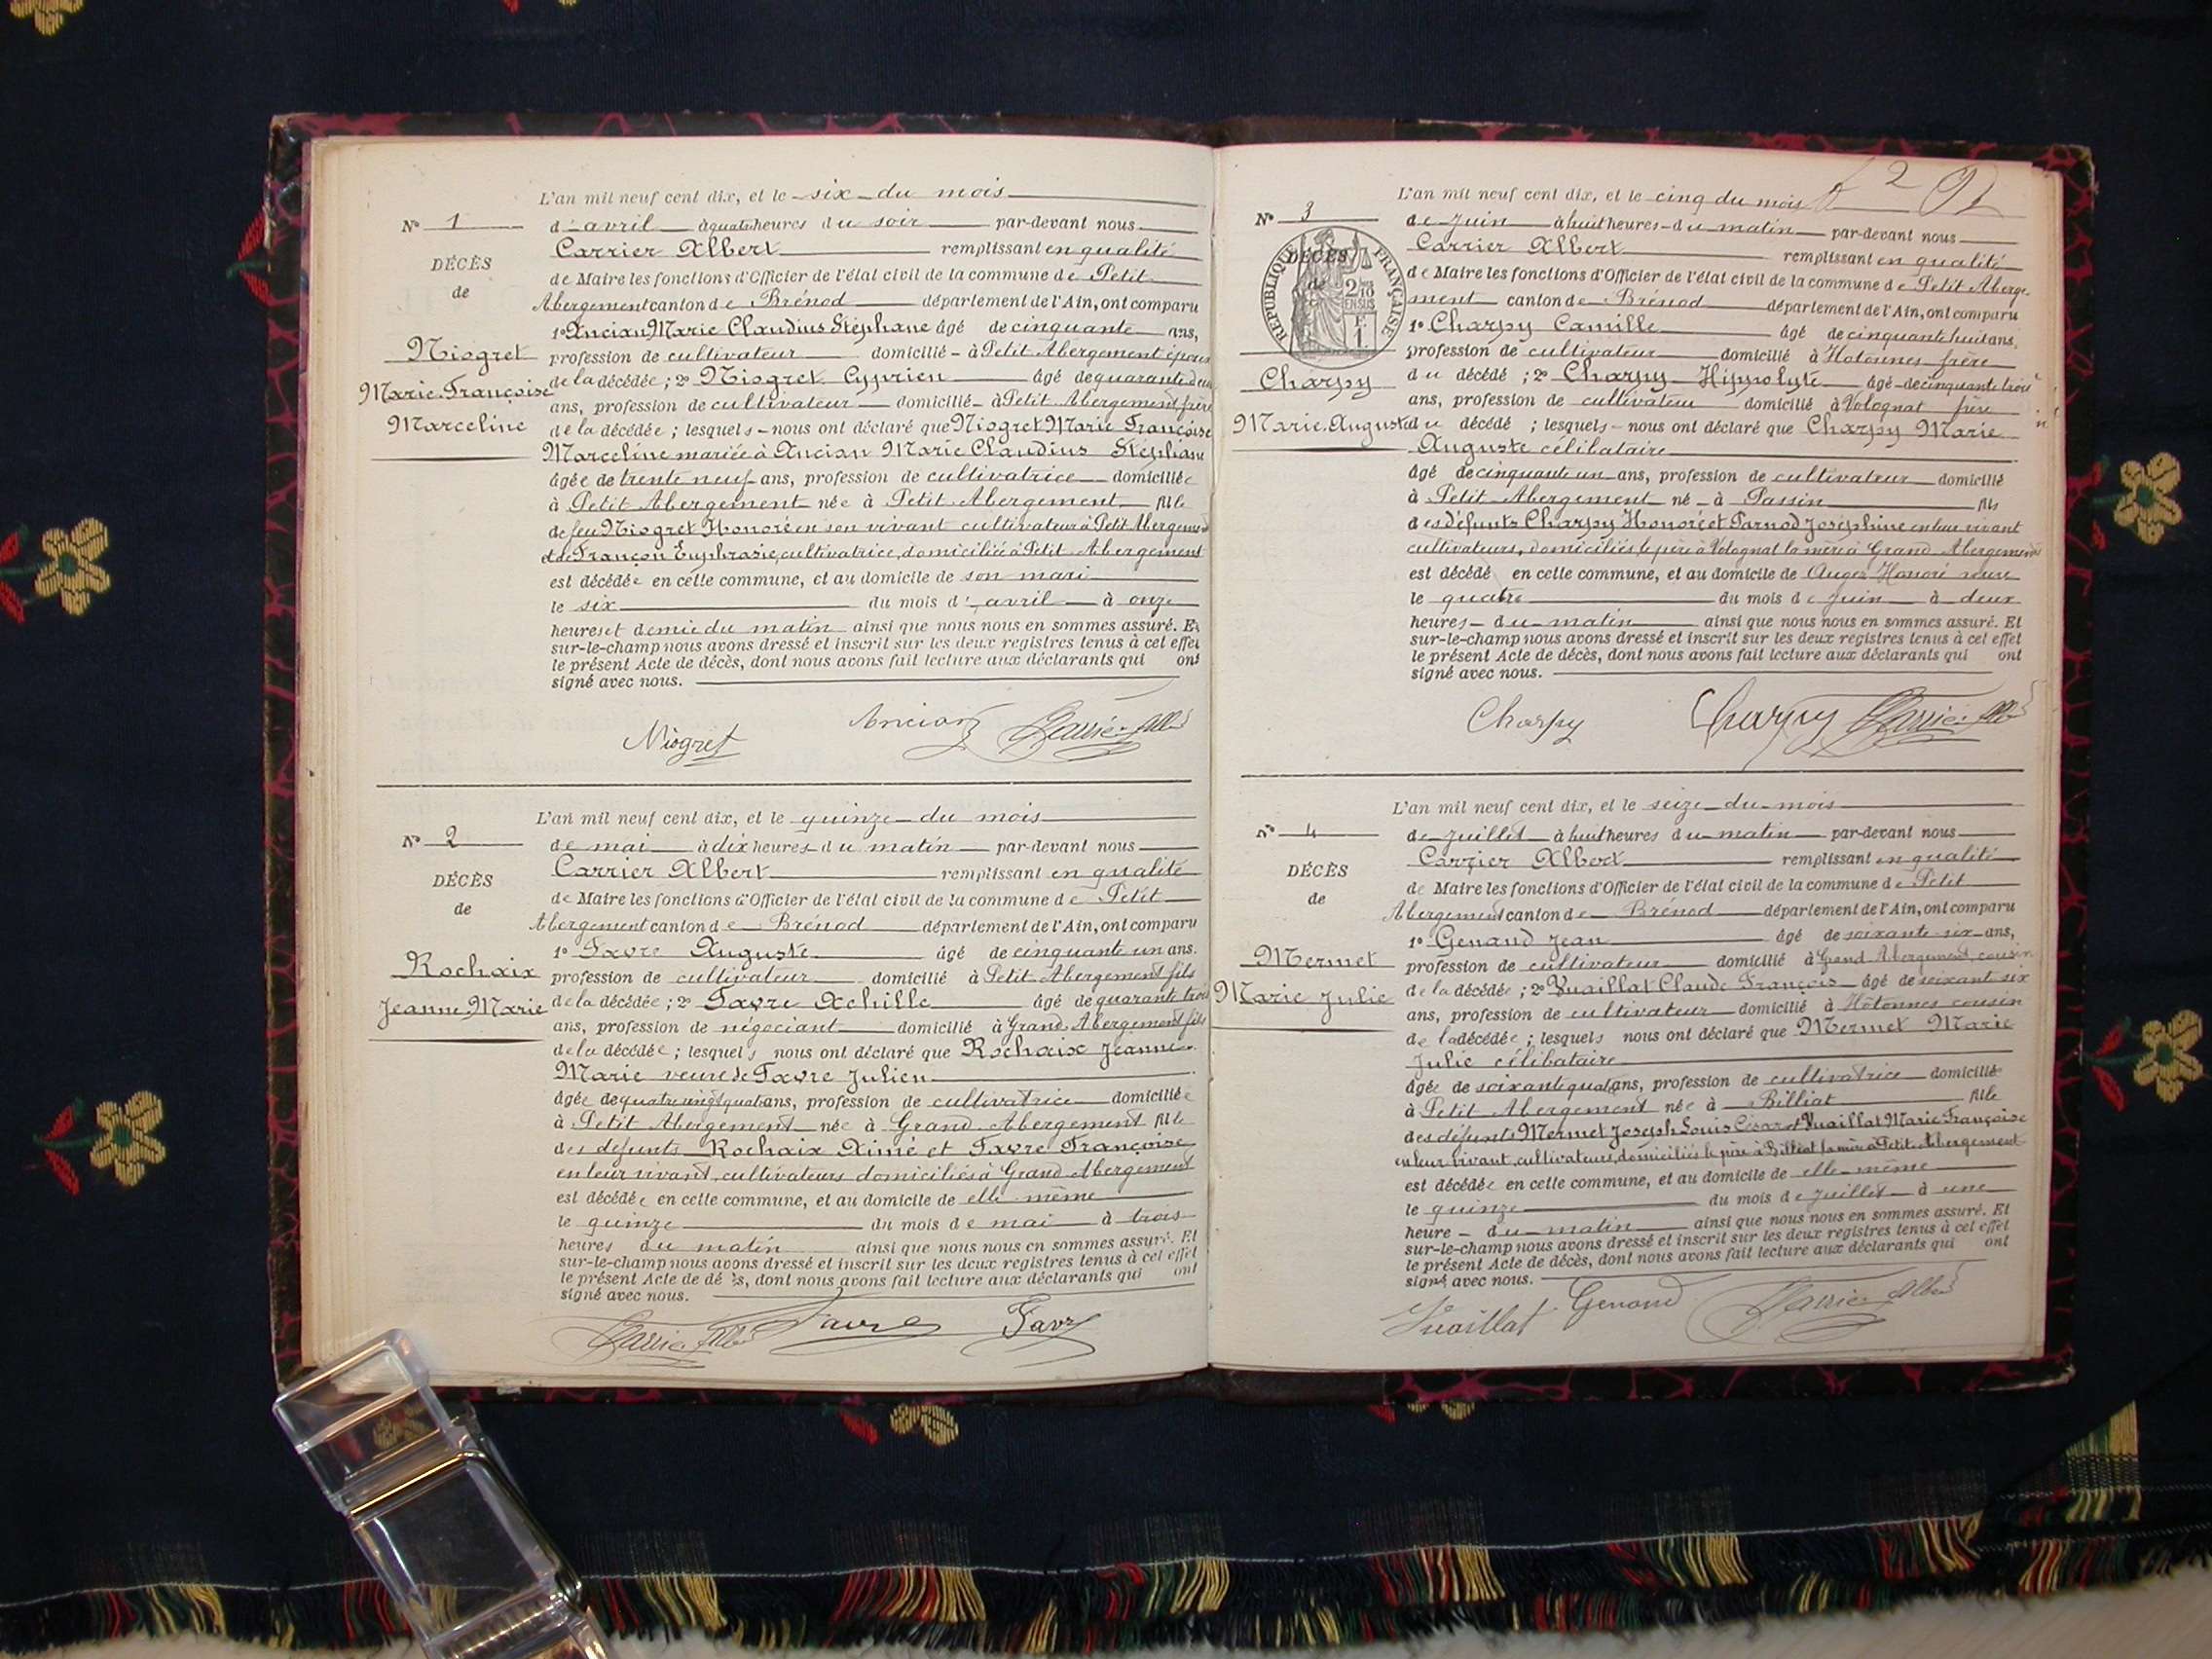 L'an mil neuf cent dix, et le six du mois
N° 1 d'avril à quatre heures du soir par-devant nous
Carrier Albert remplissant en qualité
DÉCÈS
de Maire les fonctions d'Officier de l'état civil de la commune de Petit
de
Abergement canton de Brénod département de l'Ain, ont comparu
1° Ancian Marie Claudius Stéphane âgé de cinquante ans,
Niogret profession de cultivateur domicilié à Petit Abergement époux
Marie Françoise de la décédée ; 2° Niogret Cyprien âgé de quarante deux
ans, profession de cultivateur domicilié à Petit Abergement frère
Marceline de la décédée ; lesquels nous ont déclaré que Niogret Marie Françoise
Marceline mariée à Ancian Marie Claudius Stéphane
âgée de trente neuf ans, profession de cultivatrice domiciliée
à Petit Abergement née à Petit Abergement fille
de feu Niogret Honoré en son vivant cultivateur à Petit Abergement
et de Françon Euphrasie, cultivatrice, domiciliée à Petit Abergement
est décédée en cette commune, et au domicile de son mari
le six du mois d'avril à onze
heures et demie du matin ainsi que nous nous en sommes assuré. Et
sur-le-champ nous avons dressé et inscrit sur les deux registres tenus à cet effet
le présent Acte de décès, dont nous avons fait lecture aux déclarants qui ont
signé avec nous.
Niogret Ancian Carrier Albert
L'an mil neuf cent dix, et le quinze du mois
N° 2 de mai à dix heures du matin par-devant nous
Carrier Albert remplissant en qualité
DÉCÈS
de Maire les fonctions d'Officier de l'état civil de la commune de Petit
de
Abergement canton de Brénod département de l'Ain, ont comparu
1° Favre Auguste âgé de cinquante un ans.
Rochaix profession de cultivateur domicilié à Petit Abergement fils
Jeanne Marie de la décédée ; 2° Favre Achille âgé de quarante trois
ans, profession de négociant domicilié à Grand Abergement fils
de la décédée ; lesquels nous ont déclaré que Rochaix Jeanne
Marie veuve de Favre Julien
âgée de quatre vingt quatre ans, profession de cultivatrice domiciliée
à Petit Abergement née à Grand Abergement fille
des défunts Rochaix Aimé et Favre Françoise
en leur vivant, cultivateurs domiciliés à Grand Abergement
est décédée en cette commune, et au domicile de elle même
le quinze du mois de mai à trois
heures du matin ainsi que nous nous en sommes assuré. Et
sur-le-champ nous avons dressé et inscrit sur les deux registres tenus à cet effet
le présent Acte de décès, dont nous avons fait lecture aux déclarants qui ont
signé avec nous.
Carrier Albert Favre Favre
2
L'an mil neuf cent dix, et le cinq du mois
N° 3 de juin à huit heures du matin par-devant nous
Carrier Albert remplissant en qualité
RÉPUBLIQUE FRANÇAISE
2/10 EN SUS
F. 1.
DÉCÈS
de Maire les fonctions d'Officier de l'état civil de la commune de Petit Aberge-
de
ment canton de Brénod département de l'Ain, ont comparu
1° Charpy Camille âgé de cinquante huit ans,
profession de cultivateur domicilié à Hotonnes frère
Charpy du décédé ; 2° Charpy Hippolyte âgé de cinquante trois
ans, profession de cultivateur domicilié à Volognat frère
Marie Auguste du décédé ; lesquels nous ont déclaré que Charpy Marie
Auguste célibataire
âgé de cinquante un ans, profession de cultivateur domicilié
à Petit Abergement né à Passin fils
des défunts Charpy Honoré et Parnod Joséphine en leur vivant
cultivateurs, domiciliés le père à Volognat la mère à Grand Abergement
est décédé en cette commune, et au domicile de Auger Honoré
le quatre du mois de juin à deux
heures du matin ainsi que nous nous en sommes assuré. Et
sur-le-champ nous avons dressé et inscrit sur les deux registres tenus à cet effet
le présent Acte de décès, dont nous avons fait lecture aux déclarants qui ont
signé avec nous.
Charpy Charpy Carrier Albert
L'an mil neuf cent dix, et le seize du mois
N° 4 de juillet à huit heures du matin par-devant nous
Carrier Albert remplissant en qualité
DÉCÈS
de Maire les fonctions d'Officier de l'état civil de la commune de Petit
de
Abergement canton de Brénod département de l'Ain, ont comparu
1° Genand Jean âgé de soixante six ans,
Mermet profession de cultivateur domicilié à Grand Abergement cousin
Marie Julie de la décédée ; 2° Vuaillat Claude François âgé de soixante six
ans, profession de cultivateur domicilié à Hotonnes cousin
de la décédée ; lesquels nous ont déclaré que Mermet Marie
Julie célibataire
âgée de soixante quatre ans, profession de cultivatrice domiciliée
à Petit Abergement née à Billiat fille
des défunts Mermet Joseph Louis César et Vuaillat Marie Françoise
en leur vivant, cultivateurs, domiciliés le père à Billiat la mère à Petit Abergement
est décédée en cette commune, et au domicile de elle même
le quinze du mois de juillet à une
heure du matin ainsi que nous nous en sommes assuré. Et
sur-le-champ nous avons dressé et inscrit sur les deux registres tenus à cet effet
le présent Acte de décès, dont nous avons fait lecture aux déclarants qui ont
signé avec nous.
Vuaillat Genand Carrier Albert